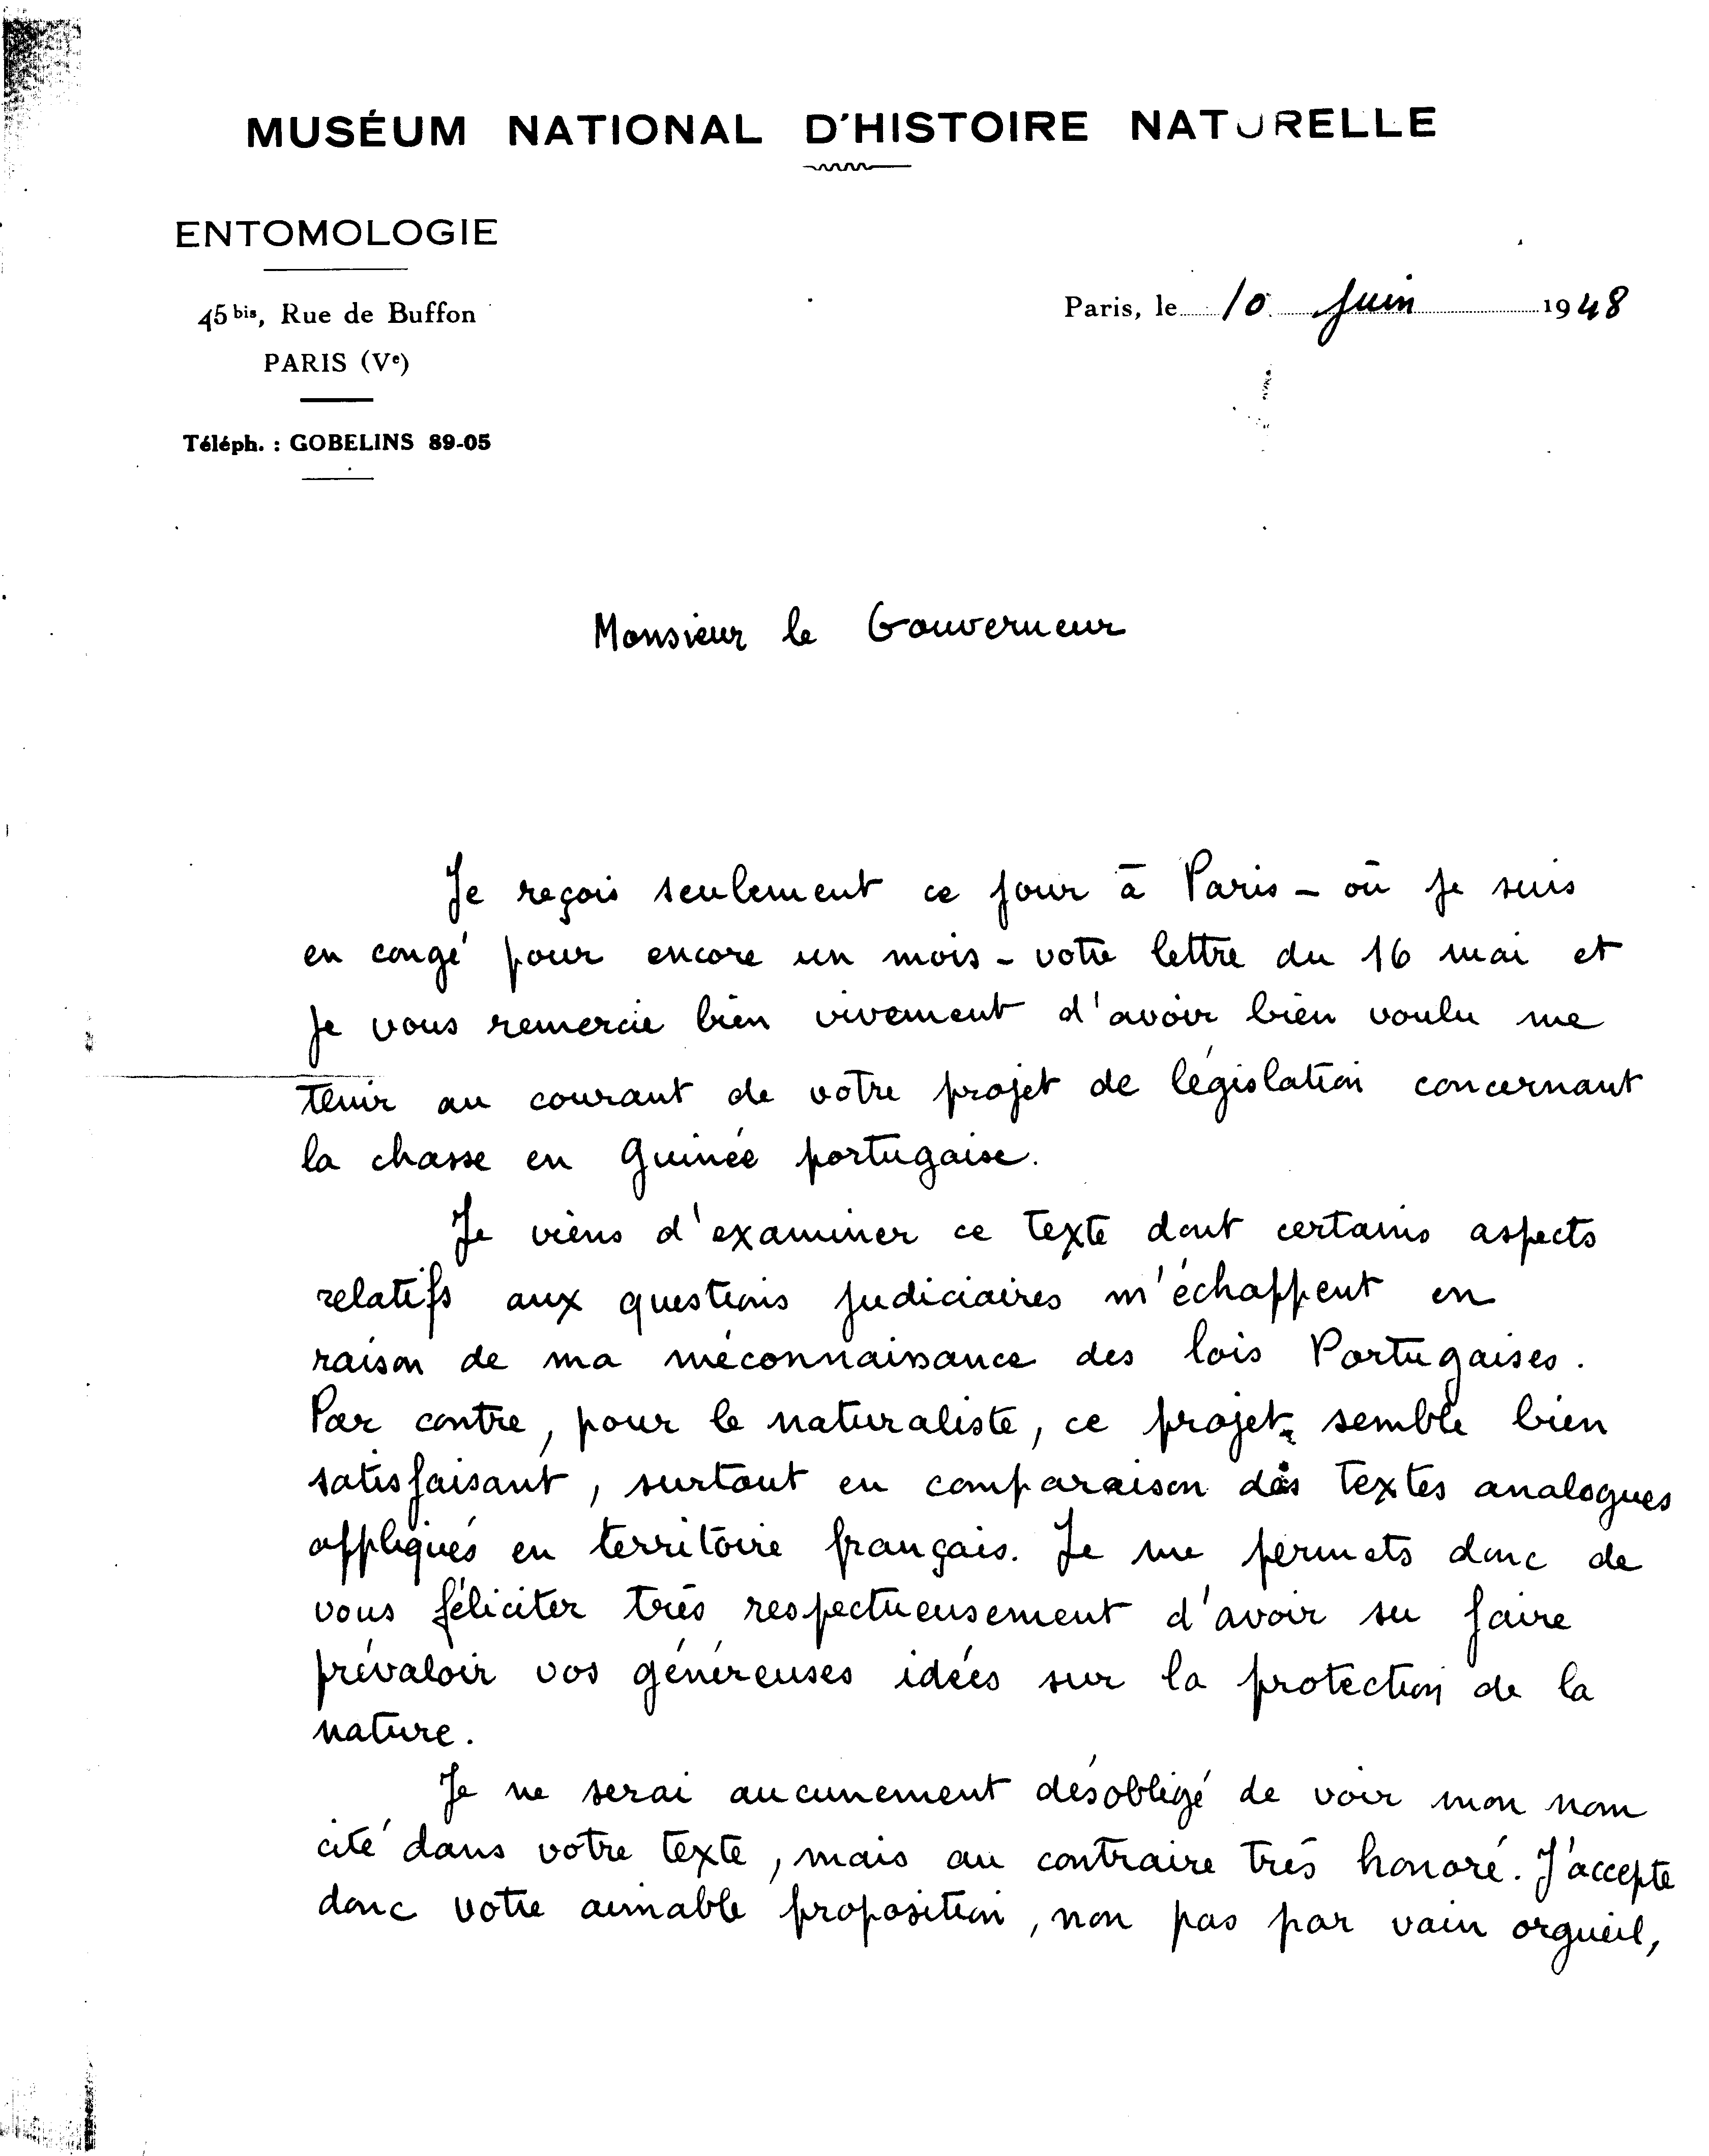 MUSÉUM NATIONAL D'HISTOIRE NATURELLE
ENTOMOLOGIE
45 bis, Rue de Buffon
PARIS (Ve)
Téléph. : GOBELINS 89-05
Paris, le 10 Juin 1948
Monsieur le Gouverneur
Je reçois seulement ce jour à Paris - où je suis
en congé pour encore un mois - votre lettre du 16 mai et
je vous remercie bien vivement d'avoir bien voulu me
tenir au courant de votre projet de législation concernant
la chasse en Guinée portugaise.
Je viens d'examiner ce texte dont certains aspects
relatifs aux questions judiciaires m'échappent en
raison de ma méconnaissance des lois Portugaises.
Par contre, pour le naturaliste, ce projet semble bien
satisfaisant, surtout en comparaison des textes analogues
appliqués en territoire français. Je me permets donc de
vous féliciter très respectueusement d'avoir su faire
prévaloir vos généreuses idées sur la protection de la
nature.
Je ne serai aucunement désobligé de voir mon nom
cité dans votre texte, mais au contraire très honoré. J'accepte
donc votre aimable proposition, non pas par vain orgueil,